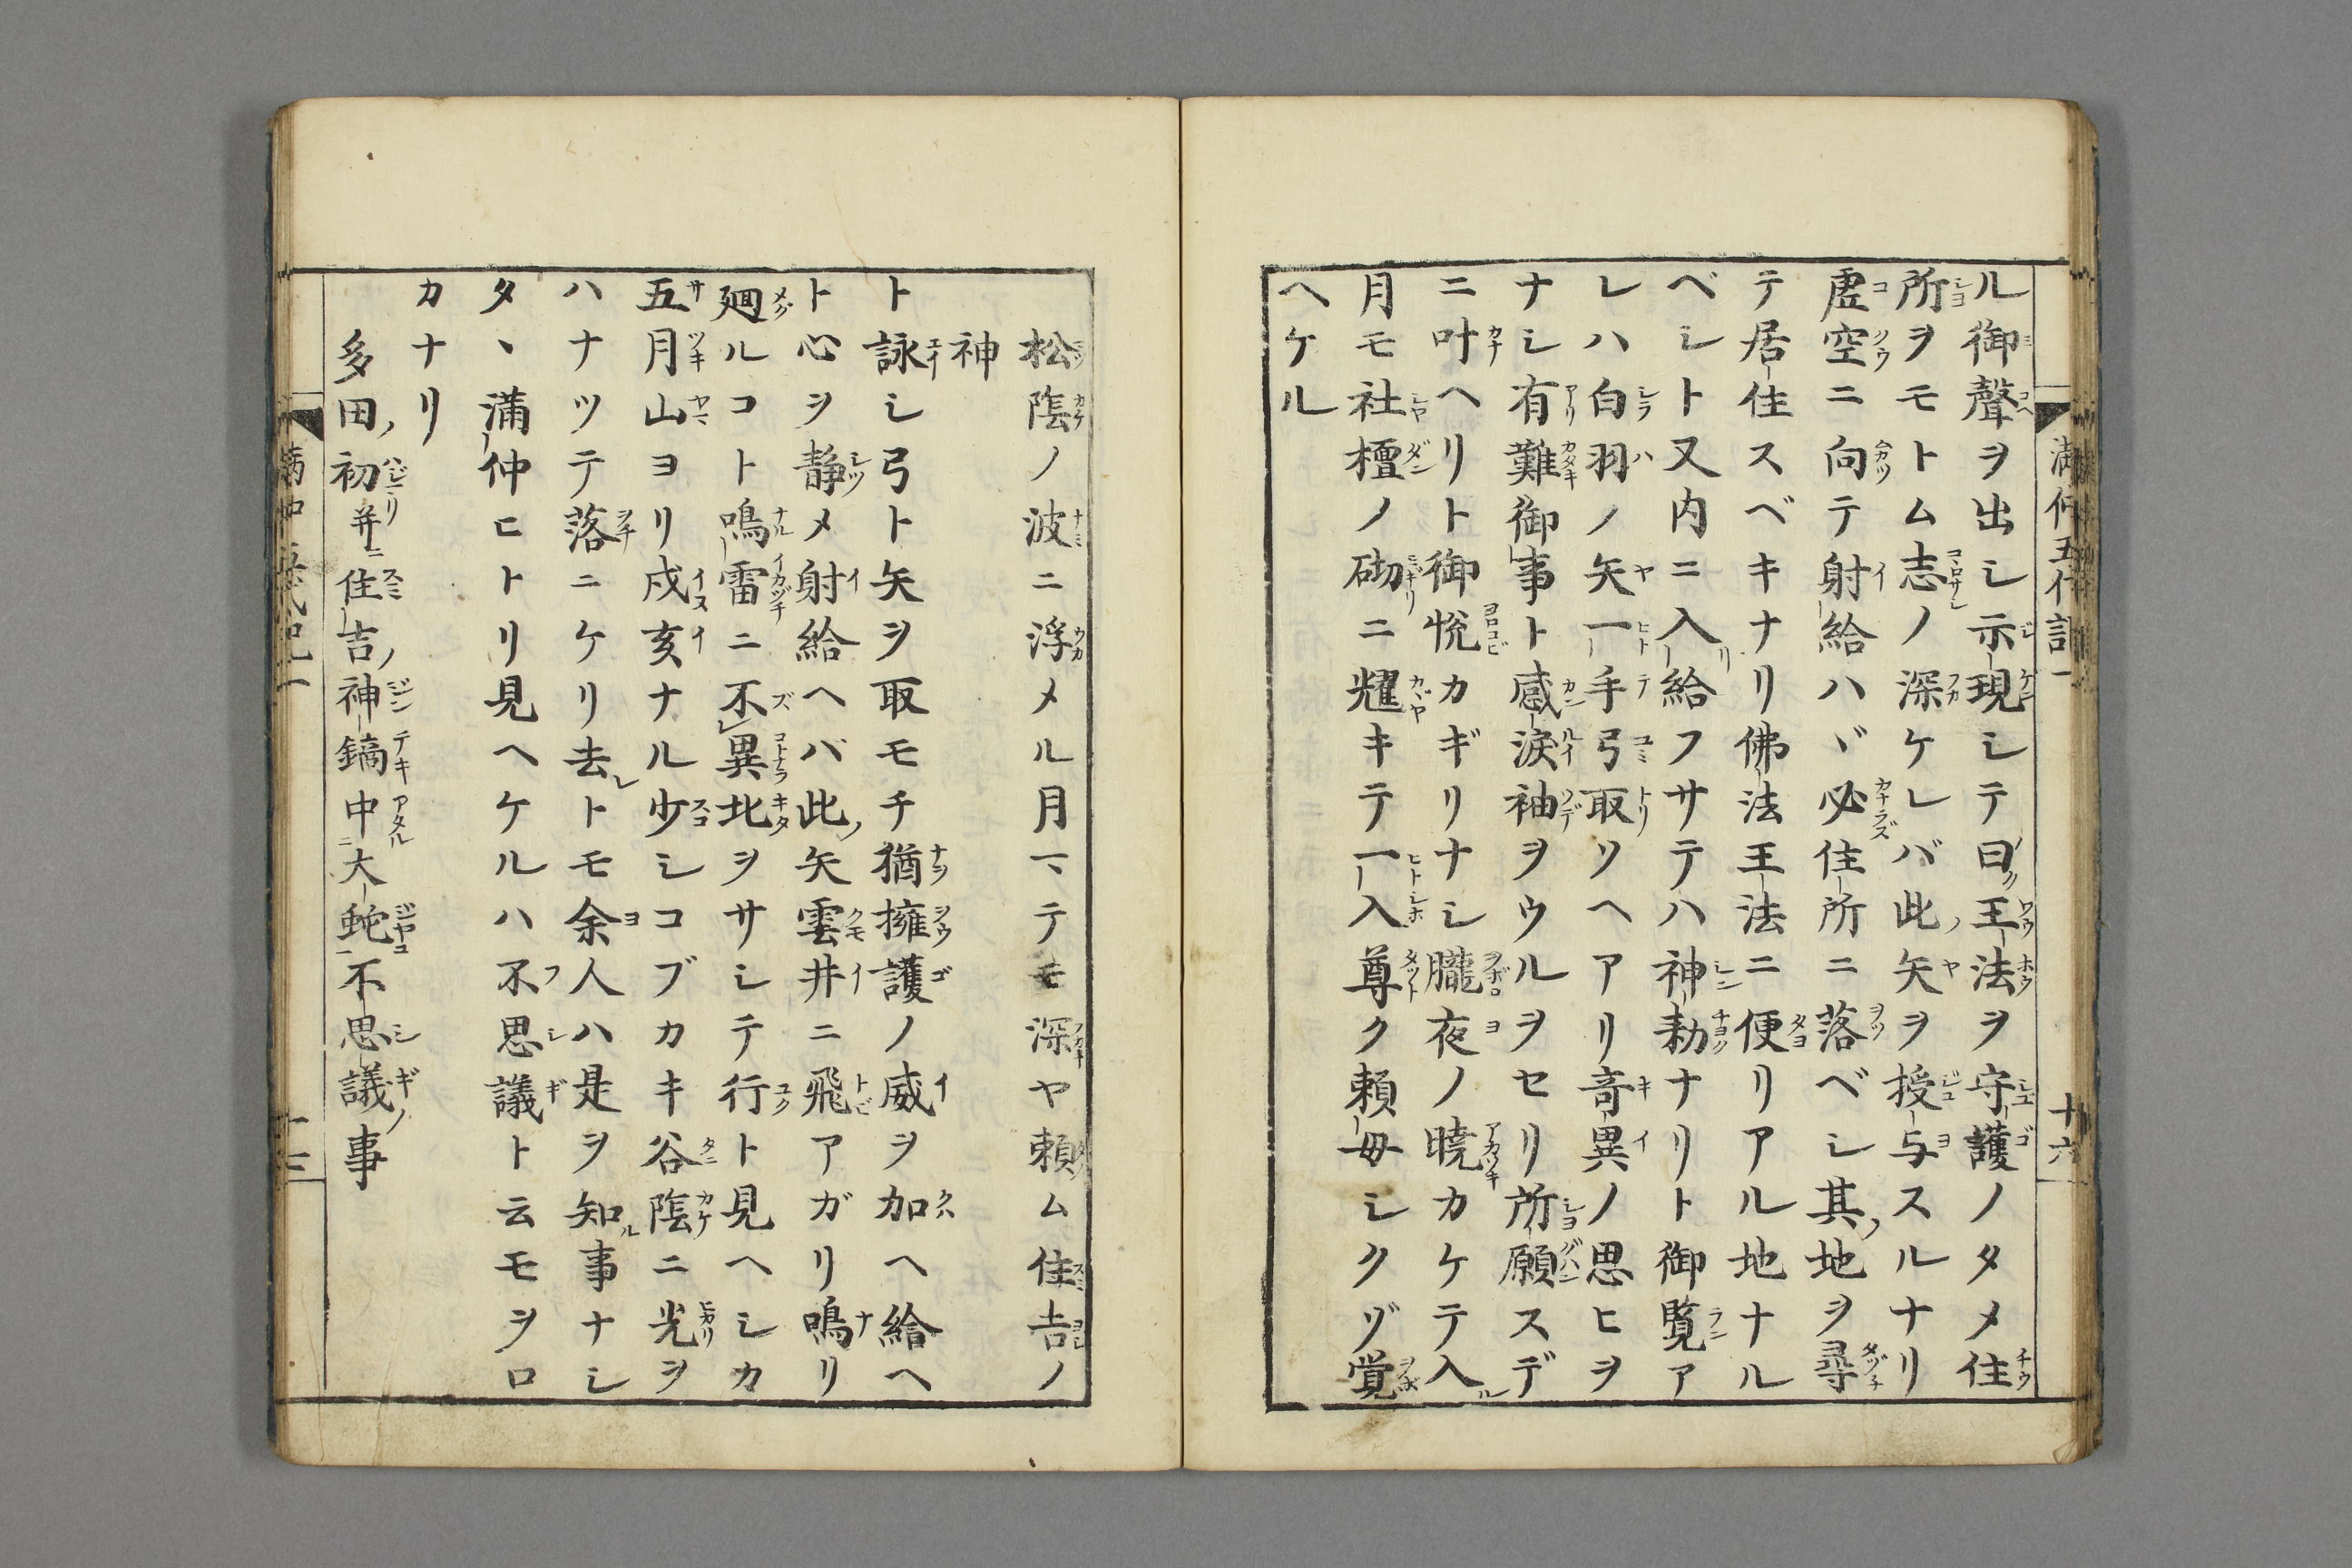 ル御聲ヲ出シ示現シテ曰ク王法ヲ守護ノタメ住
所ヲモトム志ノ深ケレバ此矢ヲ授与スルナリ
虚空ニ向テ射給ハヾ必住所ニ落ベシ其ノ地ヲ尋
テ居住スベキナリ佛法王法ニ便リアル地ナル
ベシト又内ニ入リ給フサテハ神勅ナリト御覧ア
レハ白羽ノ矢一手弓取ソヘアリ竒異ノ思ヒヲ
ナシ有難御事ト感涙袖ヲウルヲセリ所願スデ
ニ叶ヘリト御悦カギリナシ朧夜ノ暁カケテ入ル
月モ社檀ノ砌ニ耀キテ一入尊ク頼母シクヅ覚
ヘケル
満仲五代記一
十六
松陰ノ波ニ浮メル月マテモ深ヤ頼ム住吉ノ
神
ト詠シ弓ト矢ヲ取モチ猶擁護ノ威ヲ加ヘ給ヘ
ト心ヲ静メ射給ヘバ此ノ矢雲井ニ飛アガリ鳴リ
廻ルコト鳴雷ニ不異北ヲサシテ行ト見ヘシカ
五月山ヨリ戍亥ナル少シコブカキ谷陰ニ光ヲ
ハナツテ落ニケリ去レトモ余人ハ是ヲ知ル事ナシ
タヽ満仲ヒトリ見ヘケルハ不思議ト云モヲロ
カナリ
多田ノ初并ニ住吉ノ神鏑中ニ大蛇一不思議ノ事